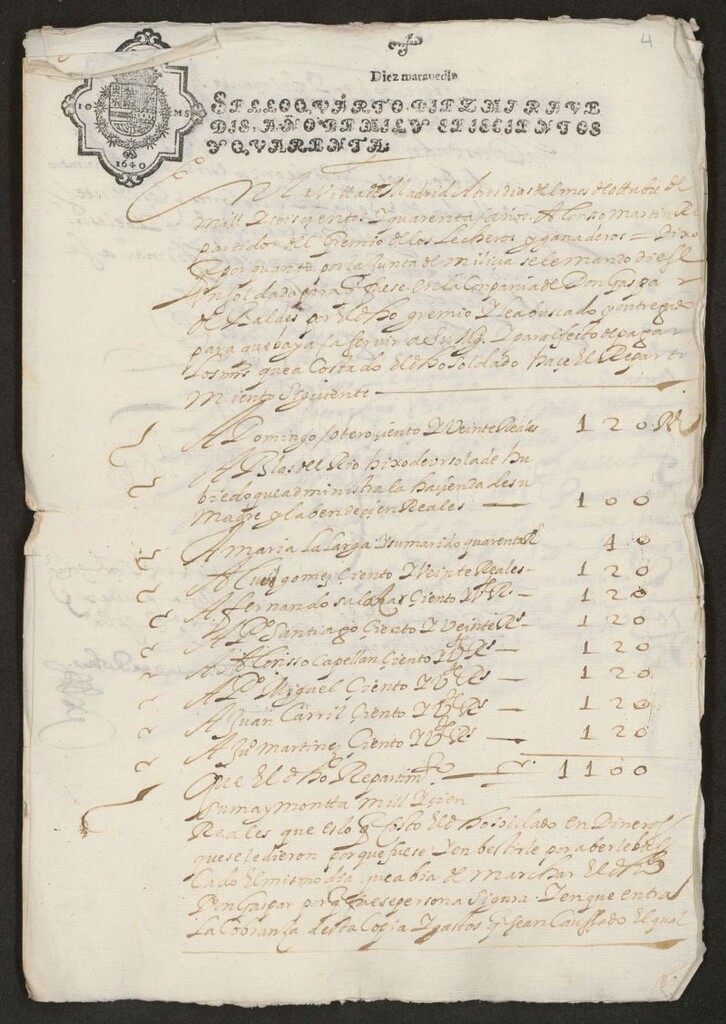 4
Diez maravedis
SELLO QVARTO, DIEZ MARAVE
DIS, AÑO DE MIL Y SEISCIENTOS
Y QVARENTA.
10 MS
1640
En la Villa de Madrid A tres dias del mes de ottubre de
mill y seisçientos y quarenta años. Alonso martin Re
partidor del Gremio de los Lecheros y ganaderos = Dixo
q por quanto por la Junta de miliçia se le mando diese
Un soldado para q fuese en la Conpania de Don Gaspar
de Valdes por el dho gremio y le a buscado y entregado
para que baya a servir a Su Mg. y para efeto de pagar
los mrs que a Costado el dho soldado haçe el Reparti
miento siguiente
A Domingo sotero çiento y Veinte Reales 120 Rs
A Blas del Rio hixo de ursola de hu
biedo que administra la haçienda de su
madre y la bende çien Reales 100
A maria la larga y su marido quarenta Rs 40
A luis gomez Çiento y Veinte Reales 120
A fernando salazar Çiento y Vte Rs 120
A Po Santiago Çiento y Veinte Rs 120
A Florisso Capellan Çiento y Vte Rs 120
A Po Miguel Çiento y Vte Rs 120
A Juan Carril Çiento y Vte Rs 120
A Juo martinez Çiento y Vte Rs 120
Que El dho Repartimto 1100
suma y montta mill y çien
Reales que es lo q Costo el dho soldado en Dineros
que se le dieron porque fuese y en bestirle por aberle bus
cado El mismo dia que abia de marchar El dho
Don Gaspar por q fuese persona sigura y en que entra
la Cobranza desta Copia y gastos q sean Caussado el qual